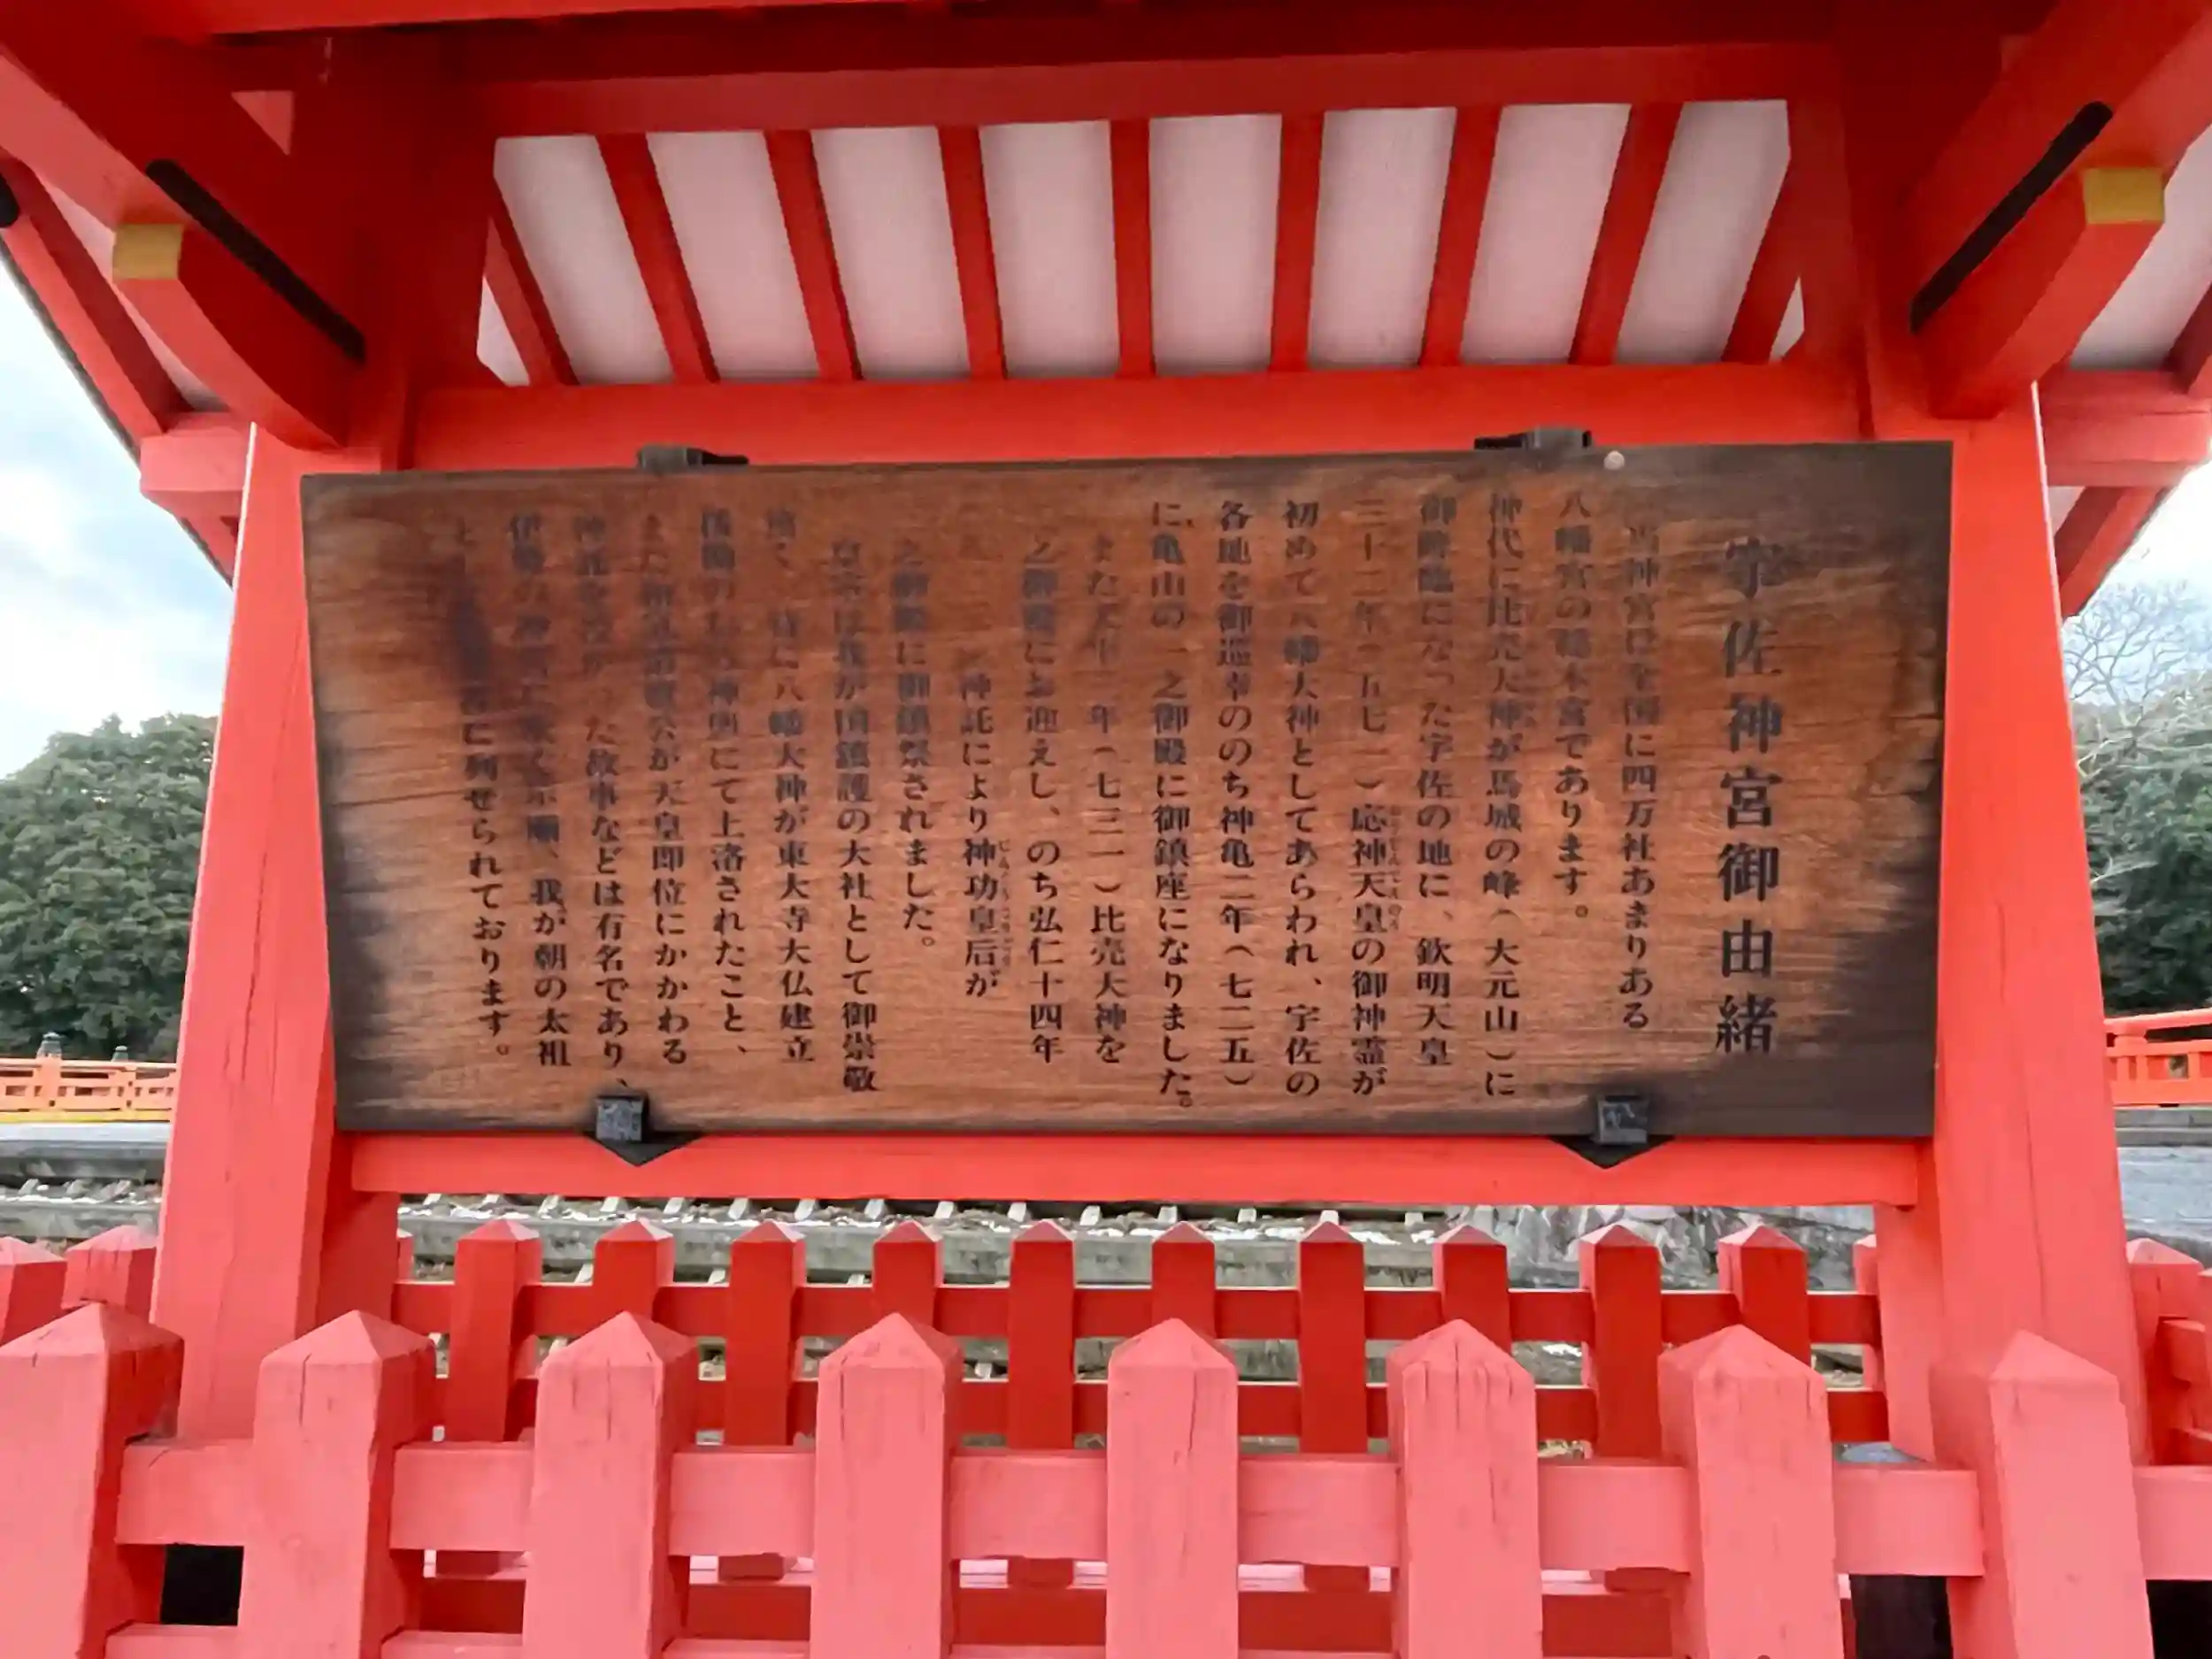 宇佐神宮御由緒
当神宮は全国に四万社あまりある
八幡宮の総本宮であります。
神代に比売大神が馬城の峰（大元山）に
御降臨になった宇佐の地に、欽明天皇
三十二年（五七一）応神天皇の御神霊が
初めて八幡大神としてあらわれ、宇佐の
各地を御巡幸ののち神亀二年（七二五）
に亀山の一之御殿に御鎮座になりました。
また天平 年（七三一）比売大神を
之御殿にお迎えし、のち弘仁十四年
神託により神功皇后が
之御殿に御鎮祭されました。
皇室は我が国鎮護の大社として御崇敬
八幡大神が東大寺大仏建立
神輿にて上洛されたこと、
また和気清麿公が天皇即位にかかわる
た故事などは有名であり、
伊勢の神宮に次ぐ宗廟、我が朝の太祖
に列せられております。